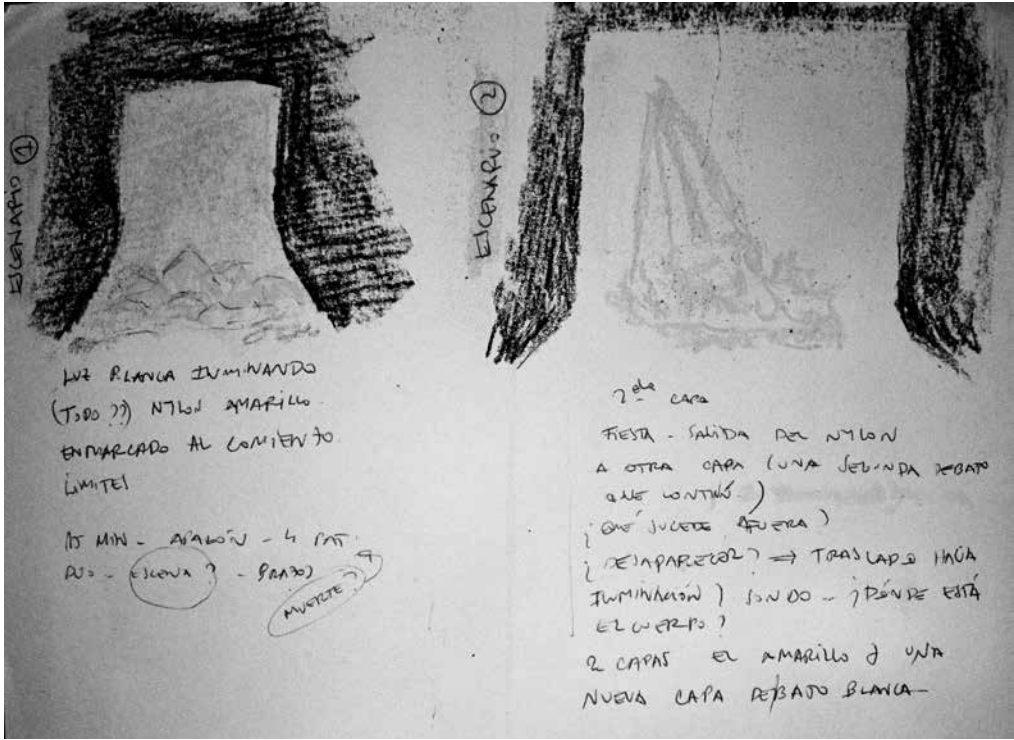 ESCENARIO ①
LUZ BLANCA ILUMINANDO
(TODO ??) NYLON AMARILLO.
ENMARCADO AL COMIENZO.
LIMITES
15 MIN - APAGÓN - 4 PAT.
DUO - ESCENA ? - BRAZOS
MUERTE ?
ESCENARIO ②
2da CAPA
FIESTA - SALIDA DEL NYLON
A OTRA CAPA (UNA SEGUNDA DEBAJO
QUE CONTINÚ.)
¿QUÉ SUCEDE AFUERA?
¿DESAPARECER? ⇒ TRASLADO HACIA
ILUMINACIÓN) SONIDO - ¿DÓNDE ESTÁ
EL CUERPO?
2 CAPAS EL AMARILLO Y UNA
NUEVA CAPA DEBAJO BLANCA-